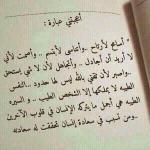 أعجبتني عبارة :
" أسامح لأرتاح .. وأتنامى لأبتسم .. وأصمت لأني
لا أريد أن أجادل .. وأتجاهل لأن لا شي يستحق
.. وأصبر لأن ثقتي بالله ليس لها حدود .. النفس
الطيبه لا يملكها إلا الشخص الطيب .. و السيره
الطيبه هي أجمل ما يتركه الإنسان في قلوب الآخرين
.. ومن تسبب في سعادة إنسان تحققت له سعادته